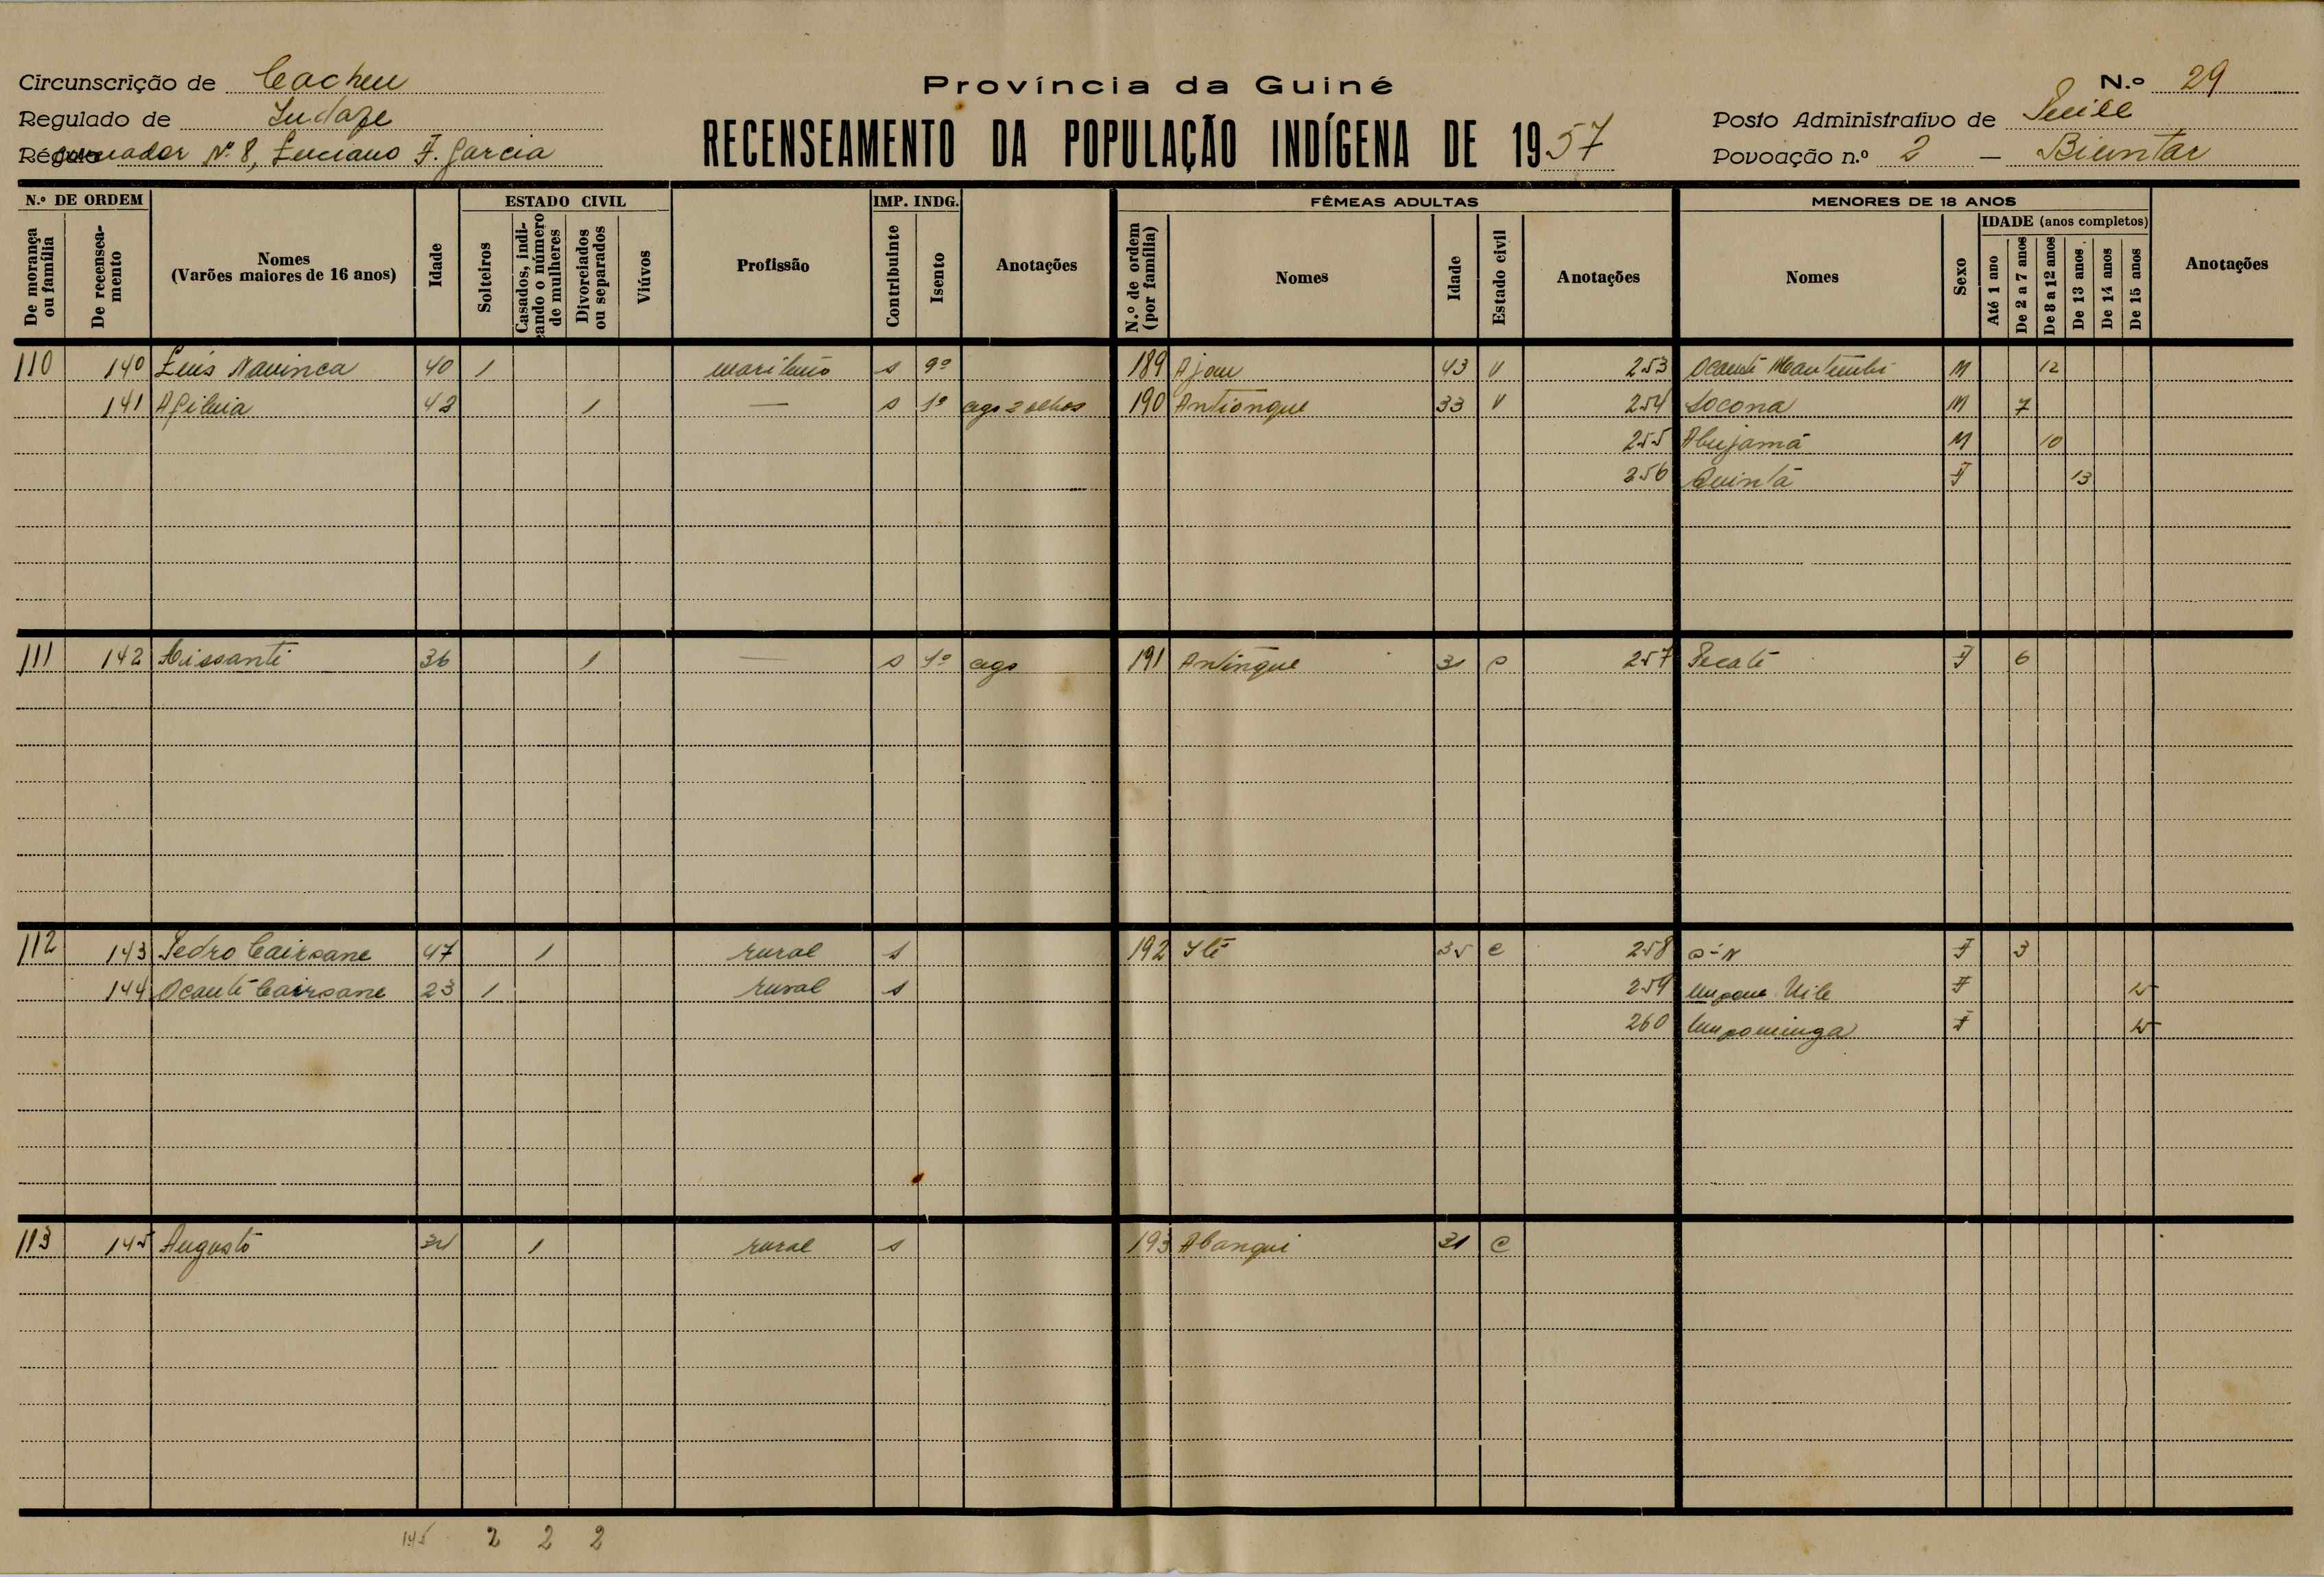 Província da Guiné
RECENSEAMENTO DA POPULAÇÃO INDÍGENA DE 1957
Circunscrição de Cacheu
Regulado de
Nº 8, Luciano F. Garcia
N.º 29
Posto Administrativo de
Povoação n.º 2 — Biantar
N.º DE ORDEM
De morança ou família
De recenseamento
Nomes
(Varões maiores de 16 anos)
Idade
ESTADO CIVIL
Solteiros
Casados, indicando o número de mulheres
Divorciados ou separados
Viúvos
Profissão
IMP. INDG.
Contribuinte
Isento
Anotações
FÊMEAS ADULTAS
N.º de ordem (por família)
Nomes
Idade
Estado civil
Anotações
MENORES DE 18 ANOS
Nomes
Sexo
IDADE (anos completos)
Até 1 ano
De 2 a 7 anos
De 8 a 12 anos
De 13 anos
De 14 anos
De 15 anos
Anotações
110 140 Luís Navinca 40 1 s 9º 189 Ajou 43 V 253 Ocanté M 12
141 42 1 — s 1º cego 2 olhos 190 Antiongue 33 V 254 Socona M 7
255 Abujamá M 10
256 Quintá F 13
111 142 36 1 — s 1º cego 191 Antingue 31 257 F 6
112 143 Pedro Cairsane 47 1 rural s 192 Ité 35 C 258 S-N F 3
144 Ocanté Cairsane 23 1 rural s 259 F 15
260 F 15
113 145 Augusto 1 rural s 193 Abangui 31 C
145 2 2 2